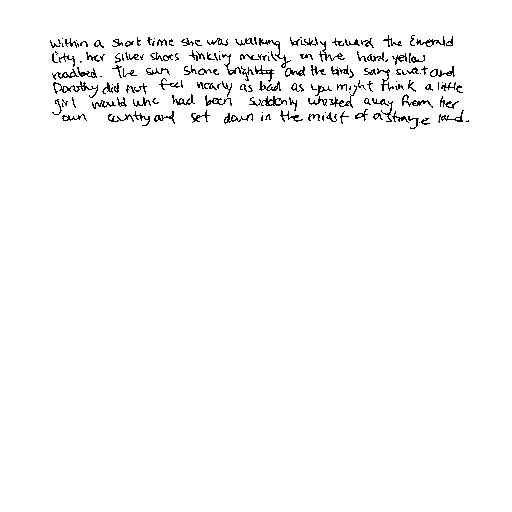 Within a short time she was walking briskly toward the Emerald
City, her silver shoes tinkling merrily on the hard, yellow
roadbed. The sun shone brightly and the birds sang sweet and
Dorothy did not feel nearly as bad as you might think a little
girl would who had been suddenly whisked away from her
own country and set down in the midst of a strange land.